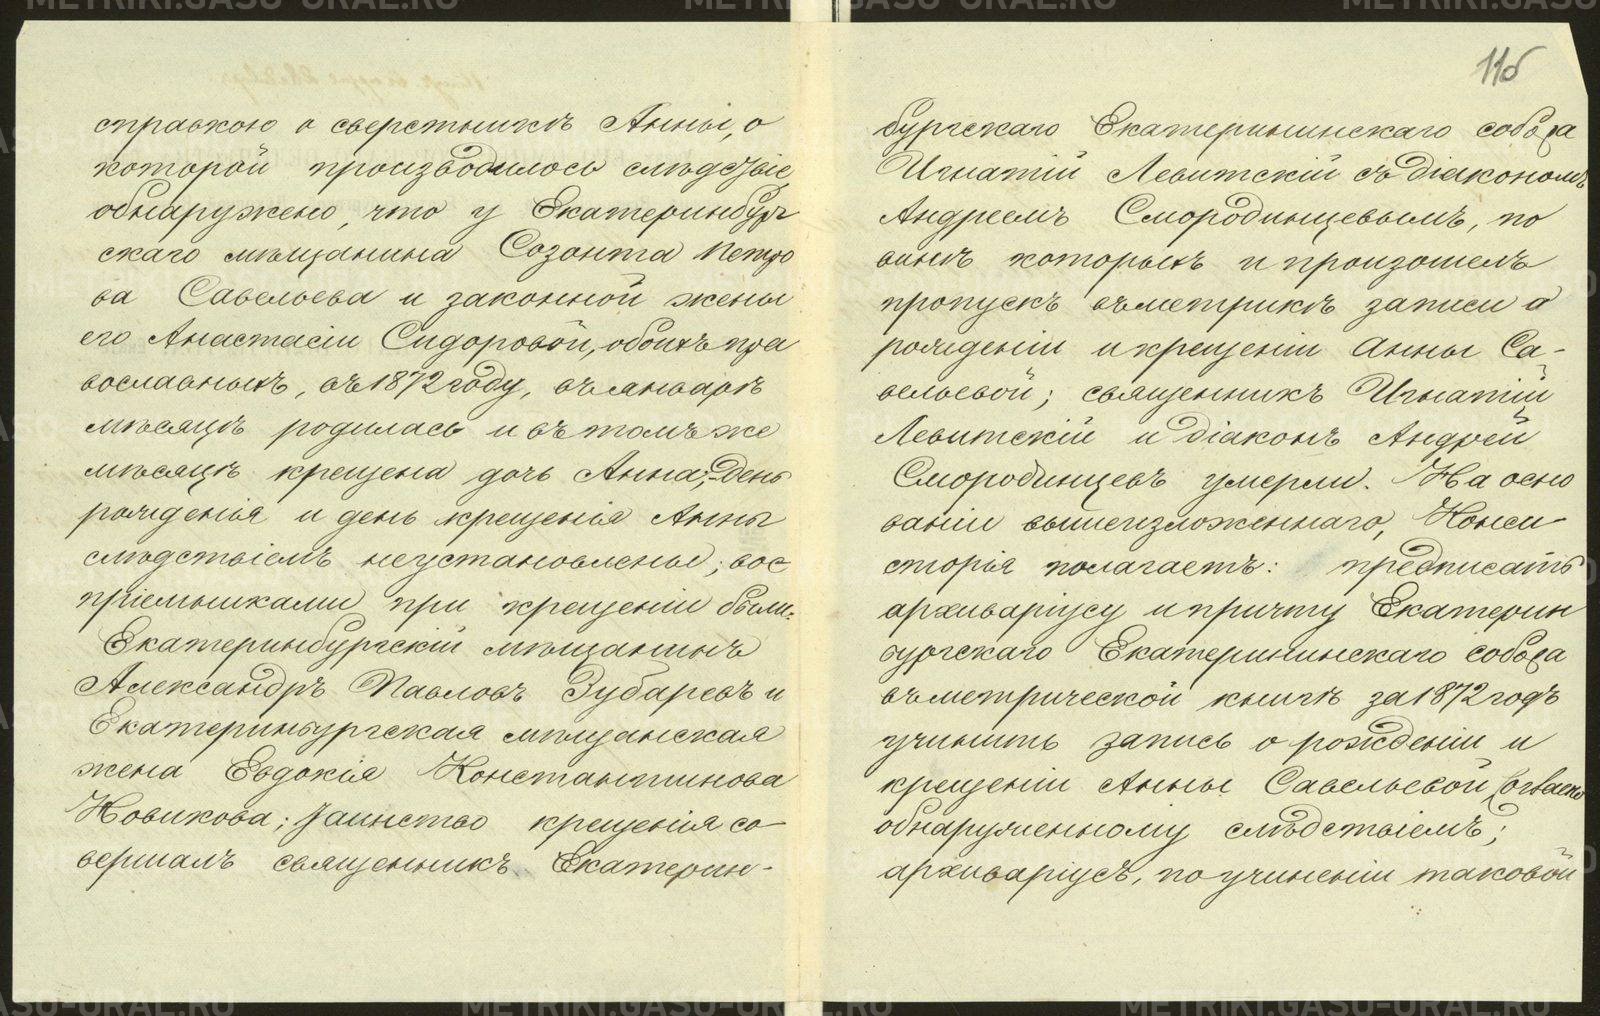 справкою о сверстникѣ Анны, о
которой производилось слѣдствіе,
обнаружено, что у Екатеринбург
скаго мѣщанина Созонта Петро
ва Савельева и законной жены
его Анастасіи Сидоровой, обоихъ пра
вославныхъ, въ 1872 году, въ январѣ
мѣсяцѣ родилась и въ томъ же
мѣсяцѣ крещена дочь Анна; день
рожденія и день крещенія Анны
слѣдствіемъ неустановлены; вос
пріемниками при крещеніи были:
Екатеринбургскій мѣщанинъ
Александръ Павловъ Зубаревъ и
Екатеринбургская мѣщанская
жена Евдокія Константинова
Новикова; таинство крещенія со
вершалъ священникъ Екатерин-
116
бургскаго Екатерининскаго собора
Игнатій Левитскій съ діакономъ
Андреемъ Смородинцевымъ, по
винѣ которыхъ и произошелъ
пропускъ въ метрикѣ записи о
рожденіи и крещеніи Анны Са-
вельевой; священникъ Игнатій
Левитскій и діаконъ Андрей
Смородинцевъ умерли. На осно
ваніи вышеизложеннаго, Конси
сторія полагаетъ: предписать
архиваріусу и причту Екатерин
бургскаго Екатерининскаго собора
въ метрической книгѣ за 1872 годъ
учинить запись о рожденіи и
крещеніи Анны Савельевой согласно
обнаруженному слѣдствіемъ;
архиваріусъ, по учиненіи таковой
METRIKI.GASU-URAL.RU